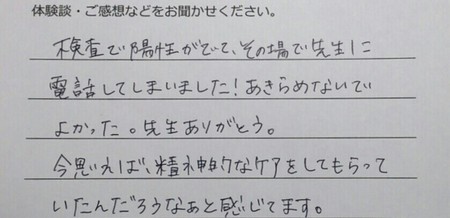 体験談・ご感想などをお聞かせください。
検査で陽性がでて、その場で先生に
電話してしまいました！あきらめないで
よかった。先生ありがとう。
今思いば、精神的なケアをしてもらって
いたんだろうなあと感じてます。